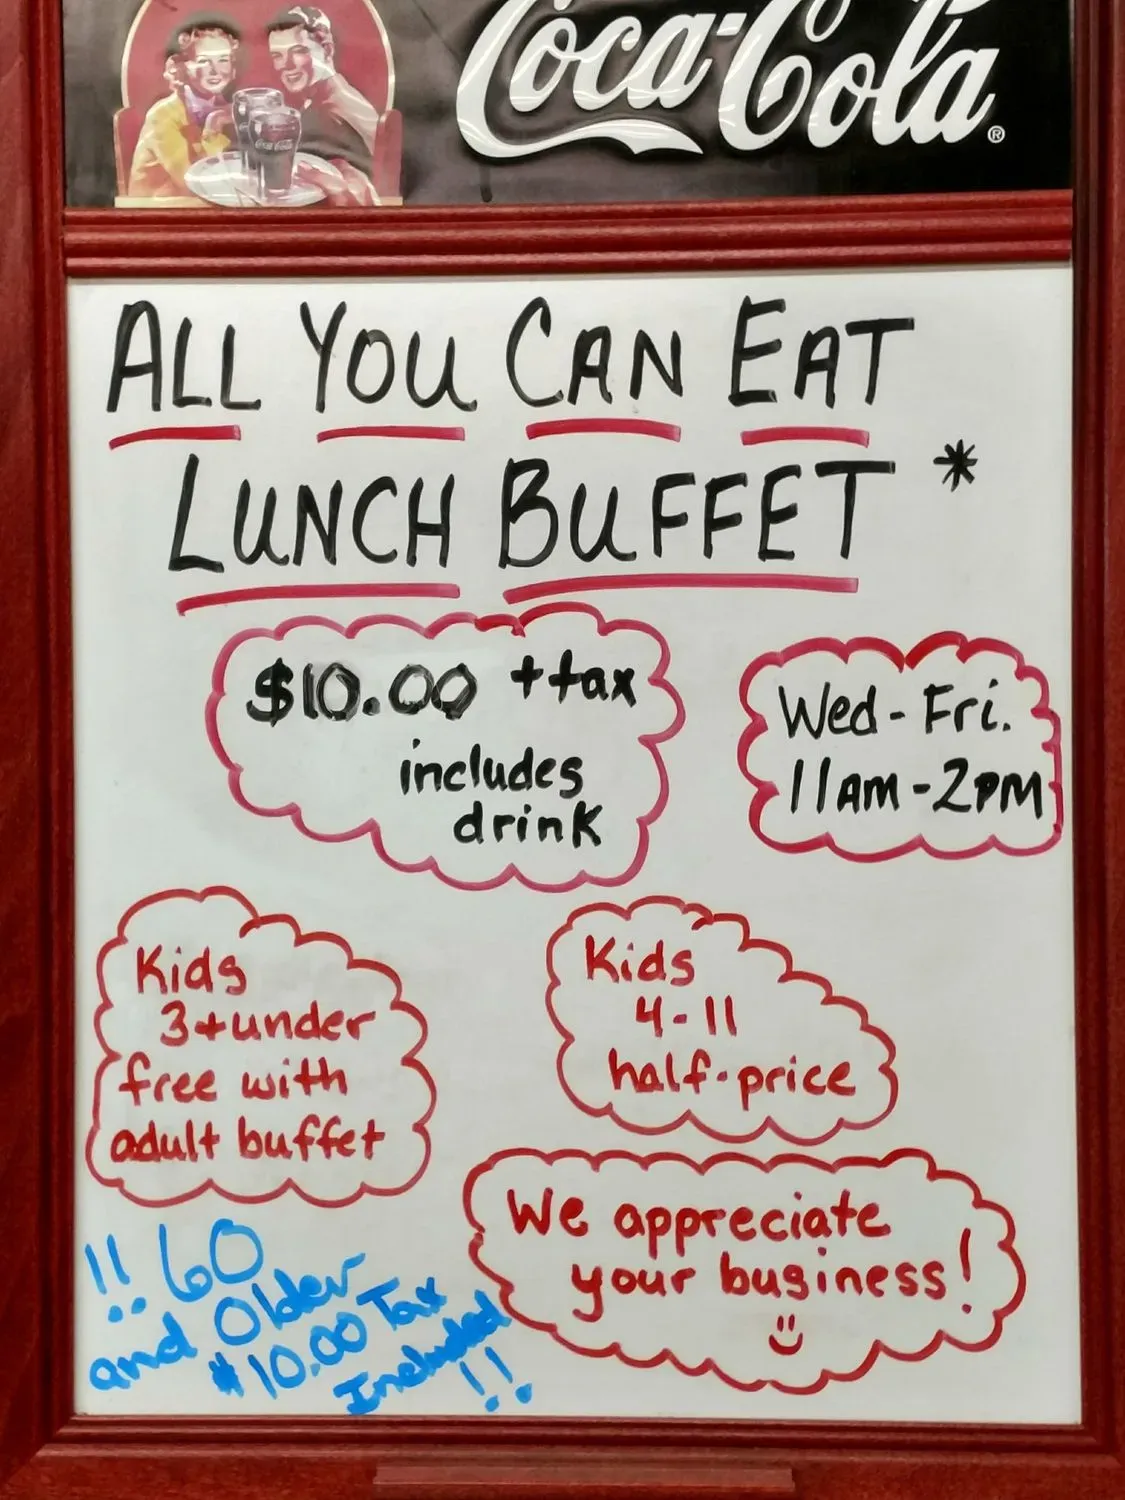 Coca-Cola®
Coca-Cola
ALL YOU CAN EAT
LUNCH BUFFET *
$10.00 + tax
includes
drink
Wed - Fri.
11AM - 2PM
Kids
3 + under
free with
adult buffet
Kids
4-11
half-price
We appreciate
your business!
!! 60
and Older
$10.00 Tax
Included
!!